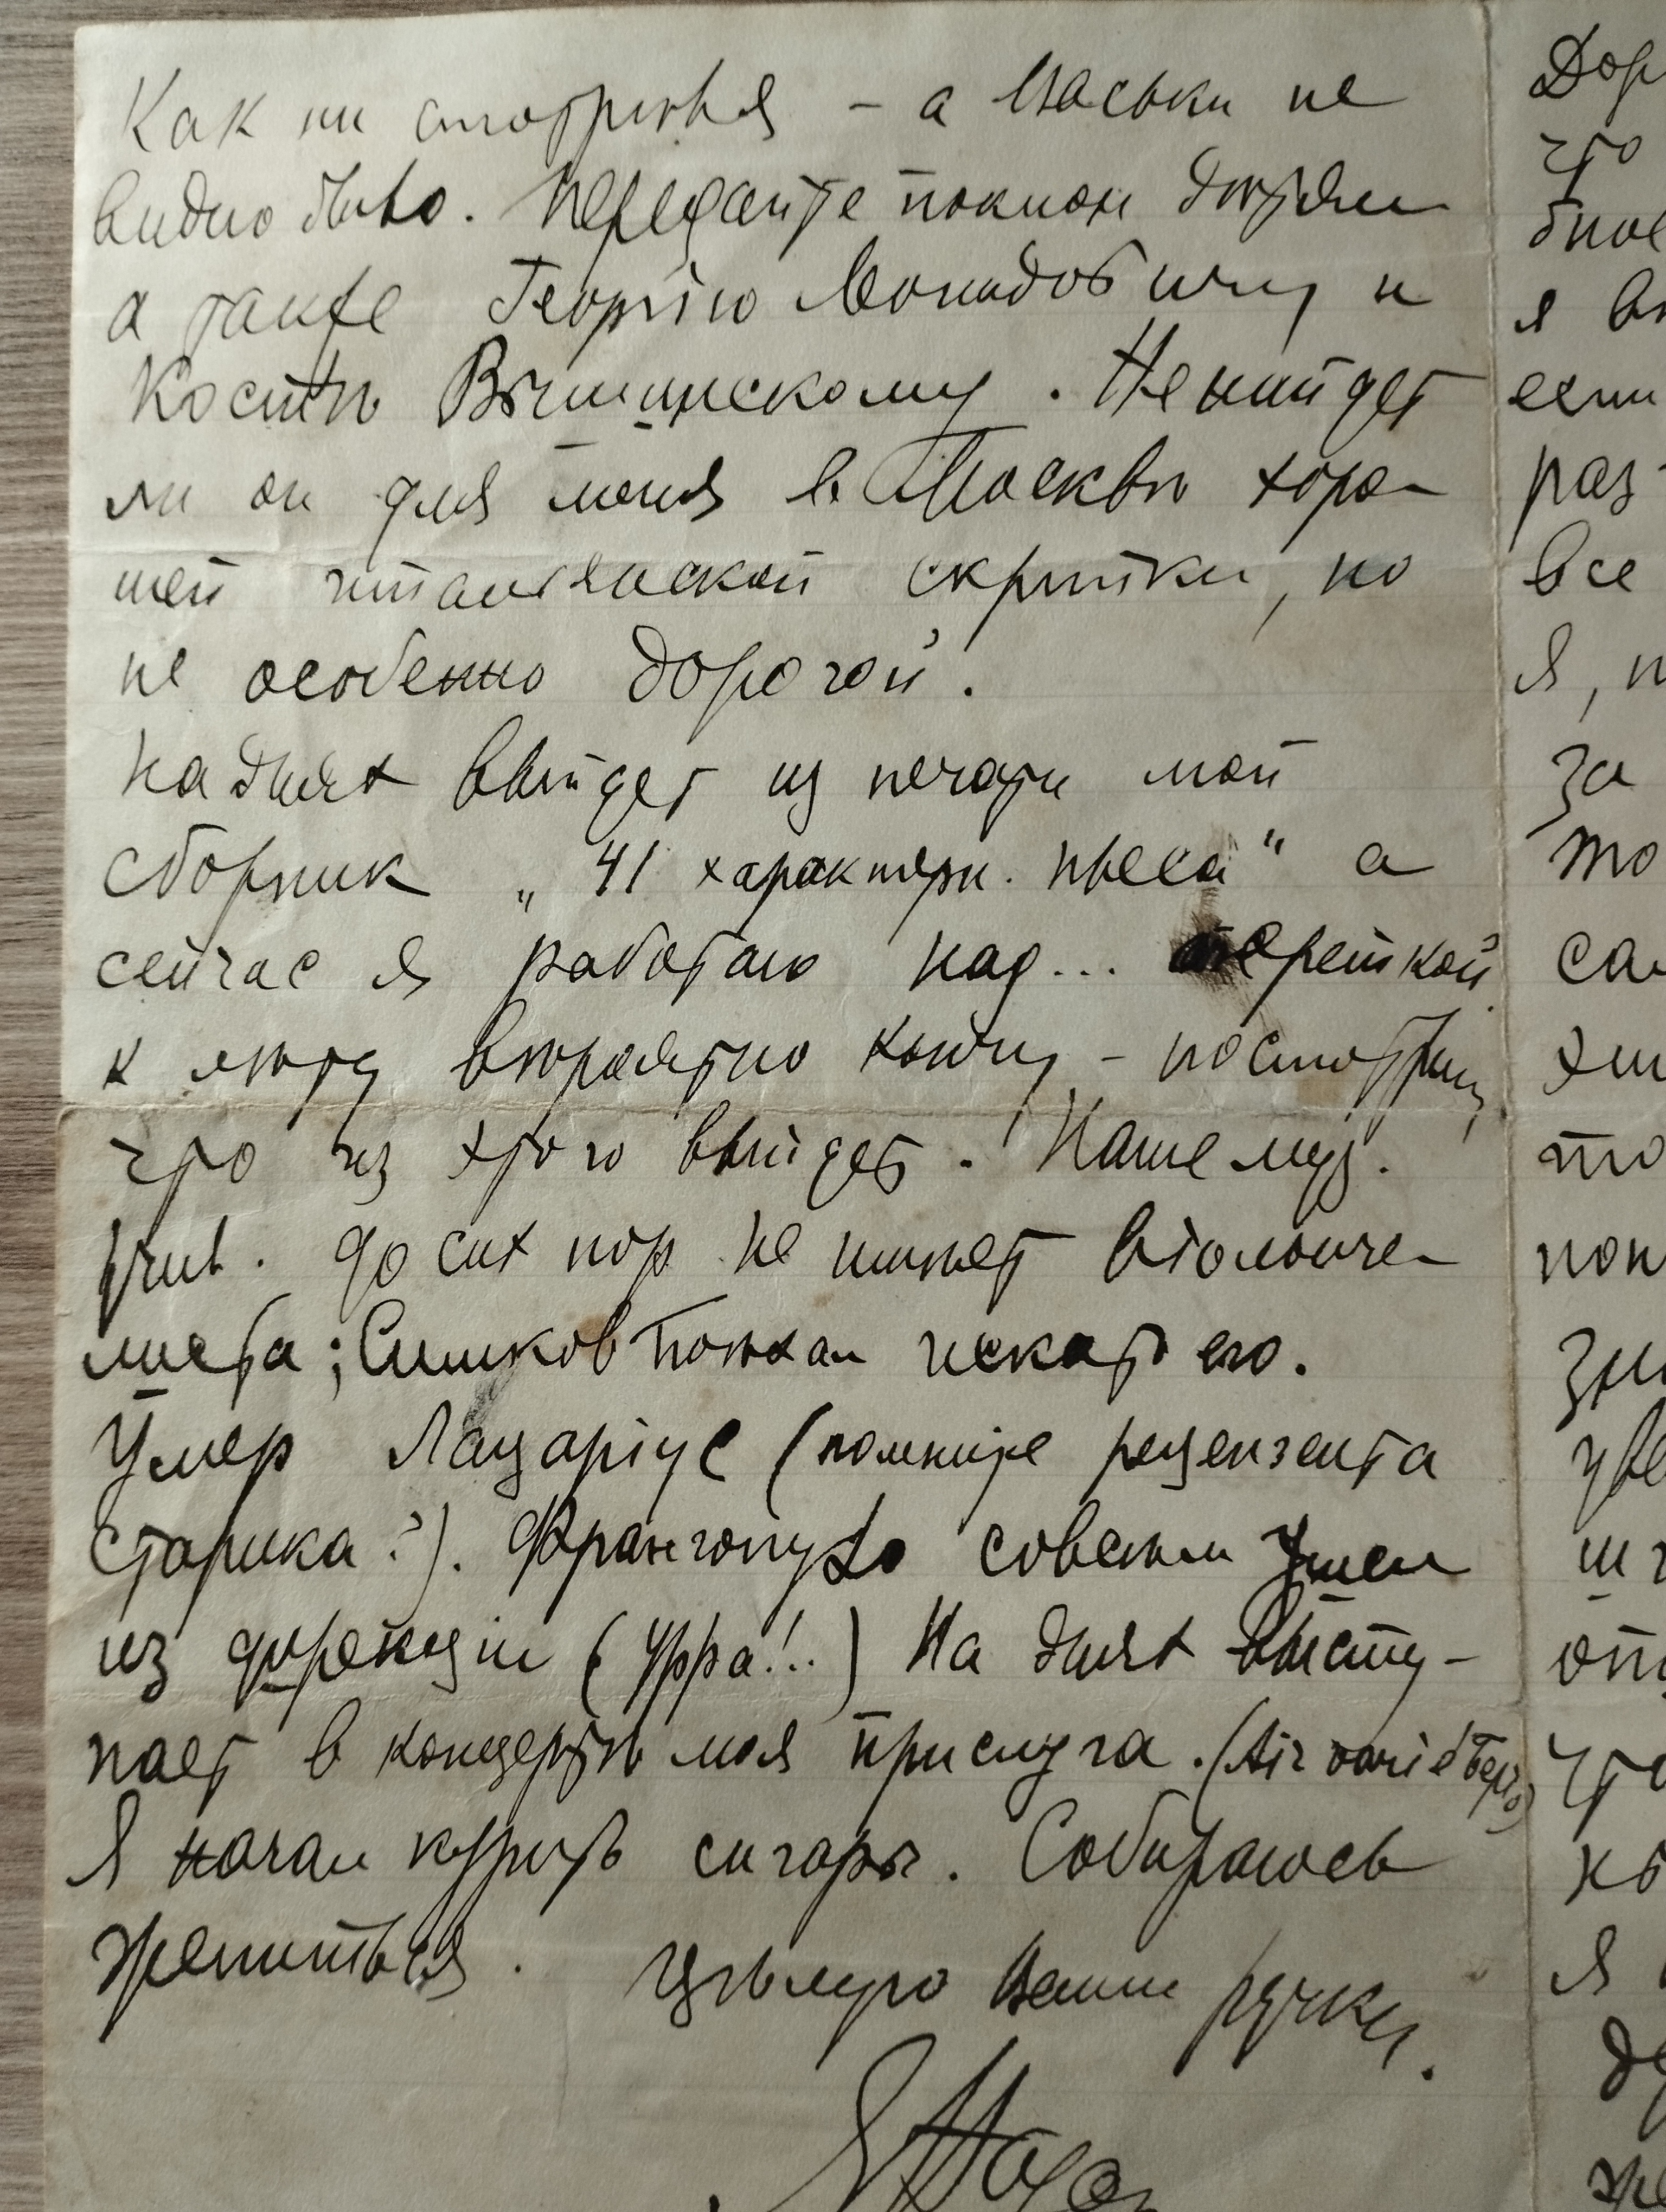 Как ни смотрѣлъ я – а Васьки не
видно было. Передайте поклон дѣтям
а также Георгію Леонидовичу и
Костѣ Вышинскому. Не найдет
ли он для меня в Москвѣ хоро-
шей итальянской скрипки, но
не особенно дорогой.
На днях выйдет из печати мой
сборник „41 характерн. пьеса" а
сейчас я работаю над... опереткой
к лѣту вѣроятно кончу – посмотрим,
что из этого выйдет. Наше муз.
учил. до сих пор не имѣет віолонче-
листа; Слатин поѣхал искать его.
Умер Лазаріус (помните рецензента
старика?). Франгопуло совсѣм ушел
из дирекціи (Урра!..) На днях высту-
пает в концертѣ моя прислуга. (Air varié Беріо)
Я начал курить сигары. Собираюсь
жениться. Цѣлую Ваши ручки.
Дор
что
я
если
раз
все
Я, п
За
то
са
что
Я